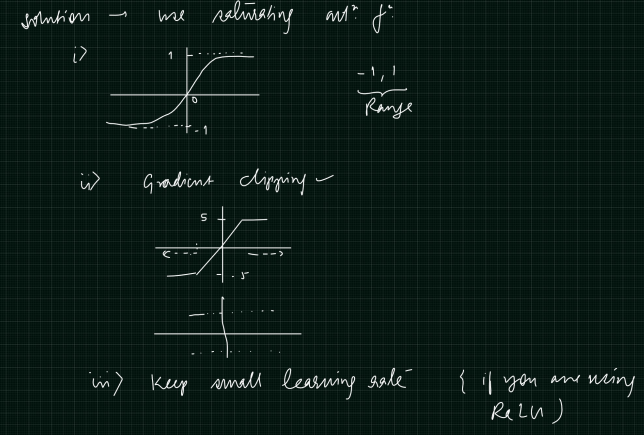 solution → use saturating actⁿ fⁿ
i>
1
-1, 1
0
Range
-1
ii> Gradient clipping -
5
-5
iii) Keep small learning rate { if you are using
ReLU )